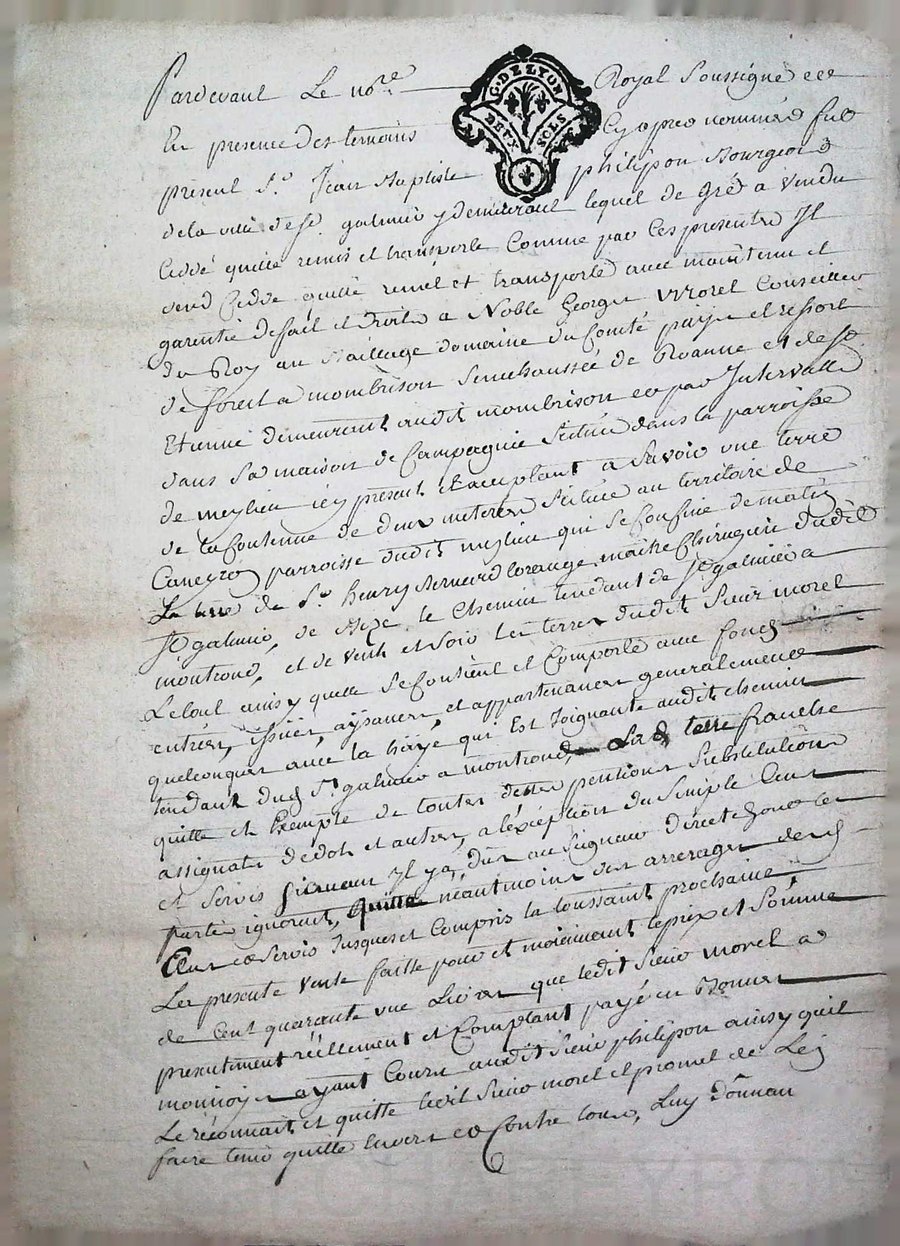 Pardevant Le no.re Royal Soussigné ee
G. DE LYON
DEUX SOLS
En presence des temoins Cy apres nommés fut
present S.r Jean Baptiste philipon Bourgeois
de la ville de S.t galmier y demeurant lequel de gré a vendu
Cedé quitté remis et transporté Comme par Ces presentes Il
vend Cedde quitte remet et transporte avec maintenu et
garentie de fait et droit a Noble George Morel Conseiller
du Roy au Bailliage domaine du Comté pays et ressort
de forest a mombrison Senechaussée de Roanne et de St
Etienne demeurant audit mombrison et par Intervalle
dans Sa maison de Campagnie Scituée dans la parroisse
de meylieu icy present et acceptant a Savoir une terre
de la Contenue de deux meterées Scituée au territoire de
parroisse dudit meylieu qui se Confine de matin
La terre de S.r henry Bernard lorange maitre Chirurgien dudit
St galmier, de Bize le Chemin tendant de St galmier a
montrond, et de vent et soir les terres dudit Sieur morel
Le tout ainsy quelle Se Contient et Comporte avec fonds
entrées, issües, aysances, et appartenances generalement
quelconques avec la haye qui Est Joignante audit chemin
tendant dud St galmier a montrond, La d. terre franche
quitte et Exempte de toutes dettes pentions Substitutions
assignats de dot et autres, a l'exception du Simple Cens
et Servis S'il y a, dus au Seigneur direct que les
parties ignorent, quitte neantmoins des arrerages desd
Cens et Servis Jusques et Compris la toussaint prochaine
La presente vente faitte pour et moiennant le prix et Somme
de Cent quarante une Livres que ledit Sieur morel a
presentement réellement et Comptant payé en Bonnes
monnoyes ayant Cours audit Sieur philipon ainsy quil
Le reconnait et quitte ledit Sieur morel et promet de Len
faire tenir quitte Envers et Contre tous, Luy donnan